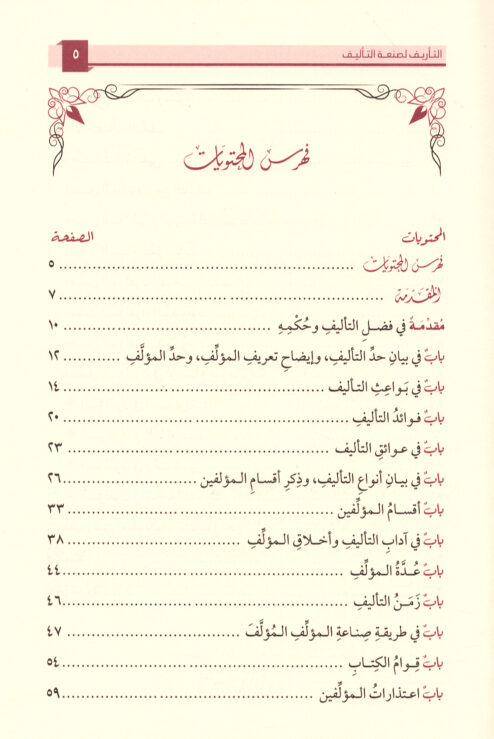 التأريف لصنعة التأليف ٥
فهرس المحتويات
المحتويات الصفحة
فهرس المحتويات ٥
المقدمة ٧
مُقدمةٌ في فضلِ التأليفِ وحُكْمِهِ ١٠
بابٌ في بيانِ حدِّ التأليفِ، وإيضاحِ تعريفِ المؤلِّفِ، وحدِّ المؤلَّفِ ١٢
بابٌ في بَواعِثِ التأليف ١٤
بابٌ فوائدُ التأليفِ ٢٠
بابٌ في عوائقِ التأليف ٢٣
بابٌ في بيانِ أنواعِ التأليفِ، وذِكرِ أقسامِ المؤلفين ٢٦
بابٌ أقسامُ المؤلِّفين ٣٣
بابٌ في آدابِ التأليفِ وأخلاقِ المؤلِّفِ ٣٨
بابٌ عُدَّةُ المؤلِّفِ ٤٤
بابٌ زَمَنُ التأليفِ ٤٦
بابٌ في طريقةِ صِناعةِ المؤلِّفِ المُؤلَّفَ ٤٧
بابٌ قِوامُ الكِتابِ ٥٤
بابٌ اعتذاراتُ المؤلِّفين ٥٩